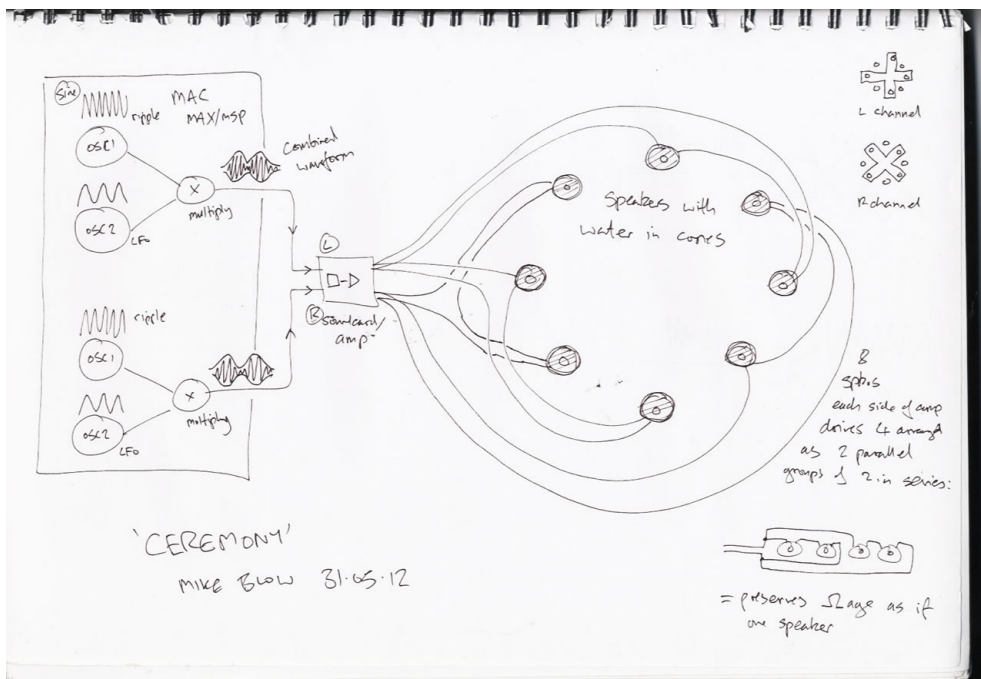 Sine
ripple
MAC
MAX/MSP
OSC1
x
multiply
OSC2
LFO
Combined
waveform
ripple
OSC1
x
multiply
OSC2
LFO
L
R
soundcard/
amp
Speakers with
water in cones
L channel
R channel
8
spkrs
each side of amp
drives 4 arranged
as 2 parallel
groups of 2 in series:
= preserves Ωage as if
one speaker
'CEREMONY'
MIKE BLOW 31.05.12